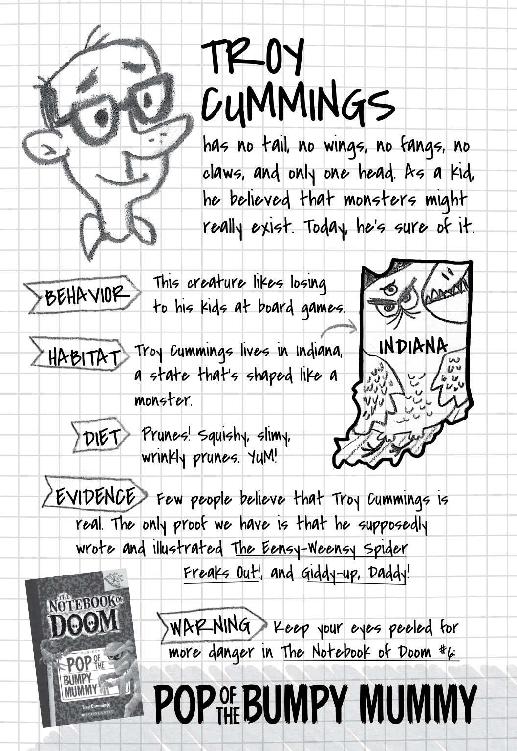 TROY
CUMMINGS
has no tail, no wings, no fangs, no
claws, and only one head. As a kid,
he believed that monsters might
really exist. Today, he's sure of it.
BEHAVIOR
This creature likes losing
to his kids at board games.
HABITAT
Troy Cummings lives in Indiana,
a state that's shaped like a
monster.
INDIANA
DIET
Prunes! Squishy, slimy,
wrinkly prunes. YUM!
EVIDENCE
Few people believe that Troy Cummings is
real. The only proof we have is that he supposedly
wrote and illustrated The Eensy-Weensy Spider
Freaks Out!, and Giddy-up, Daddy!
THE
NOTEBOOK OF
DOOM
POP OF THE
BUMPY
MUMMY
Troy Cummings
WARNING
Keep your eyes peeled for
more danger in The Notebook of Doom #6:
POP OF THE BUMPY MUMMY